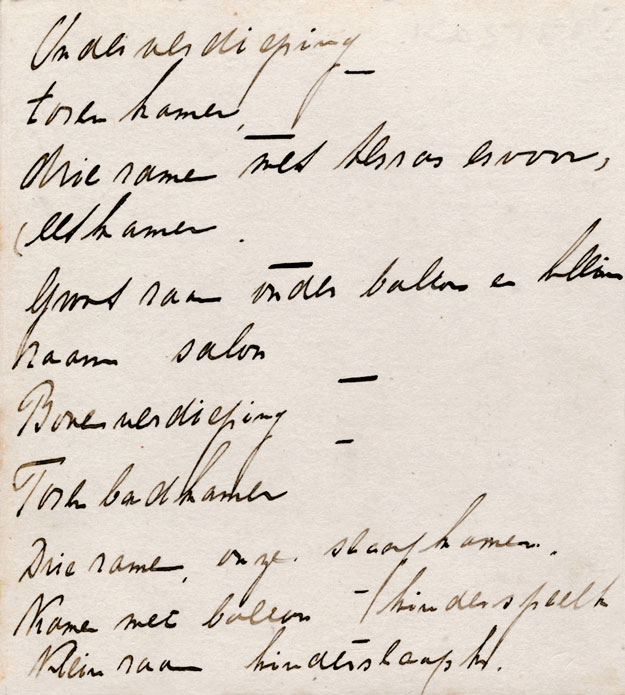 Onderverdieping –
toren kamer, –
drie rame met terras ervoor,
(eetkamer. –
Groot raam onder balcon en klein
raam salon –
Bovenverdieping –
Toren badkamer
Drie rame, onze slaapkamer.
Kamer met balcon – kinderspeelk
Klein raam kinderslaapk.